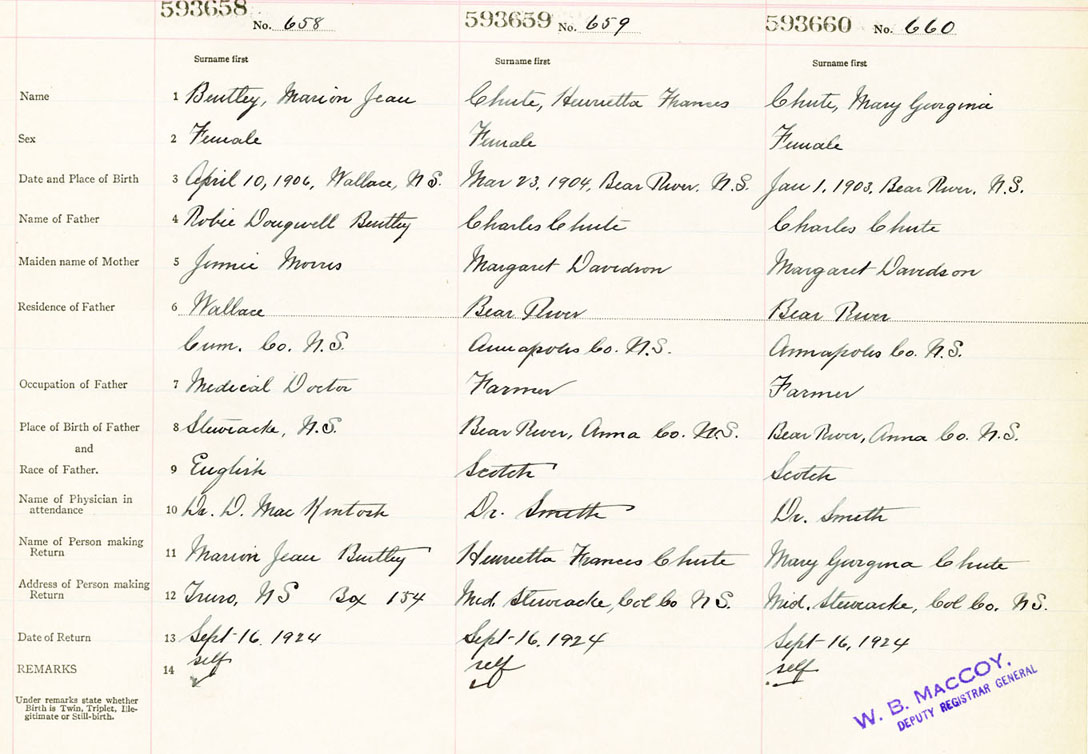 593658 No. 658 593659 No. 659 593660 No. 660
Surname first Surname first Surname first
Name 1 Bentley, Marion Jean Chute, Henrietta Frances Chute, Mary Georgina
Sex 2 Female Female Female
Date and Place of Birth 3 April 10, 1906, Wallace, N.S. Mar 23, 1904, Bear River, N.S. Jan 1, 1903, Bear River, N.S.
Name of Father 4 Robie Bentley Charles Chute Charles Chute
Maiden name of Mother 5 Jennie Morris Margaret Davidson Margaret Davidson
Residence of Father 6 Wallace Bear River Bear River
Cum. Co. N.S. Annapolis Co. N.S. Annapolis Co. N.S.
Occupation of Father 7 Medical Doctor Farmer Farmer
Place of Birth of Father 8 Stewiacke, N.S. Bear River, Anna Co. N.S. Bear River, Anna Co. N.S.
and
Race of Father. 9 English Scotch Scotch
Name of Physician in
attendance 10 Dr. D. MacKintosh Dr. Smith Dr. Smith
Name of Person making
Return 11 Marion Jean Bentley Henrietta Frances Chute Mary Georgina Chute
Address of Person making
Return 12 Truro, NS Box 154 Mid. Stewiacke, Col Co N.S. Mid. Stewiacke, Col Co. N.S.
Date of Return 13 Sept 16, 1924 Sept-16, 1924 Sept 16, 1924
REMARKS 14 self self self
Under remarks state whether
Birth is Twin, Triplet, Ille-
gitimate or Still-birth.
W. B. MACCOY,
DEPUTY REGISTRAR GENERAL